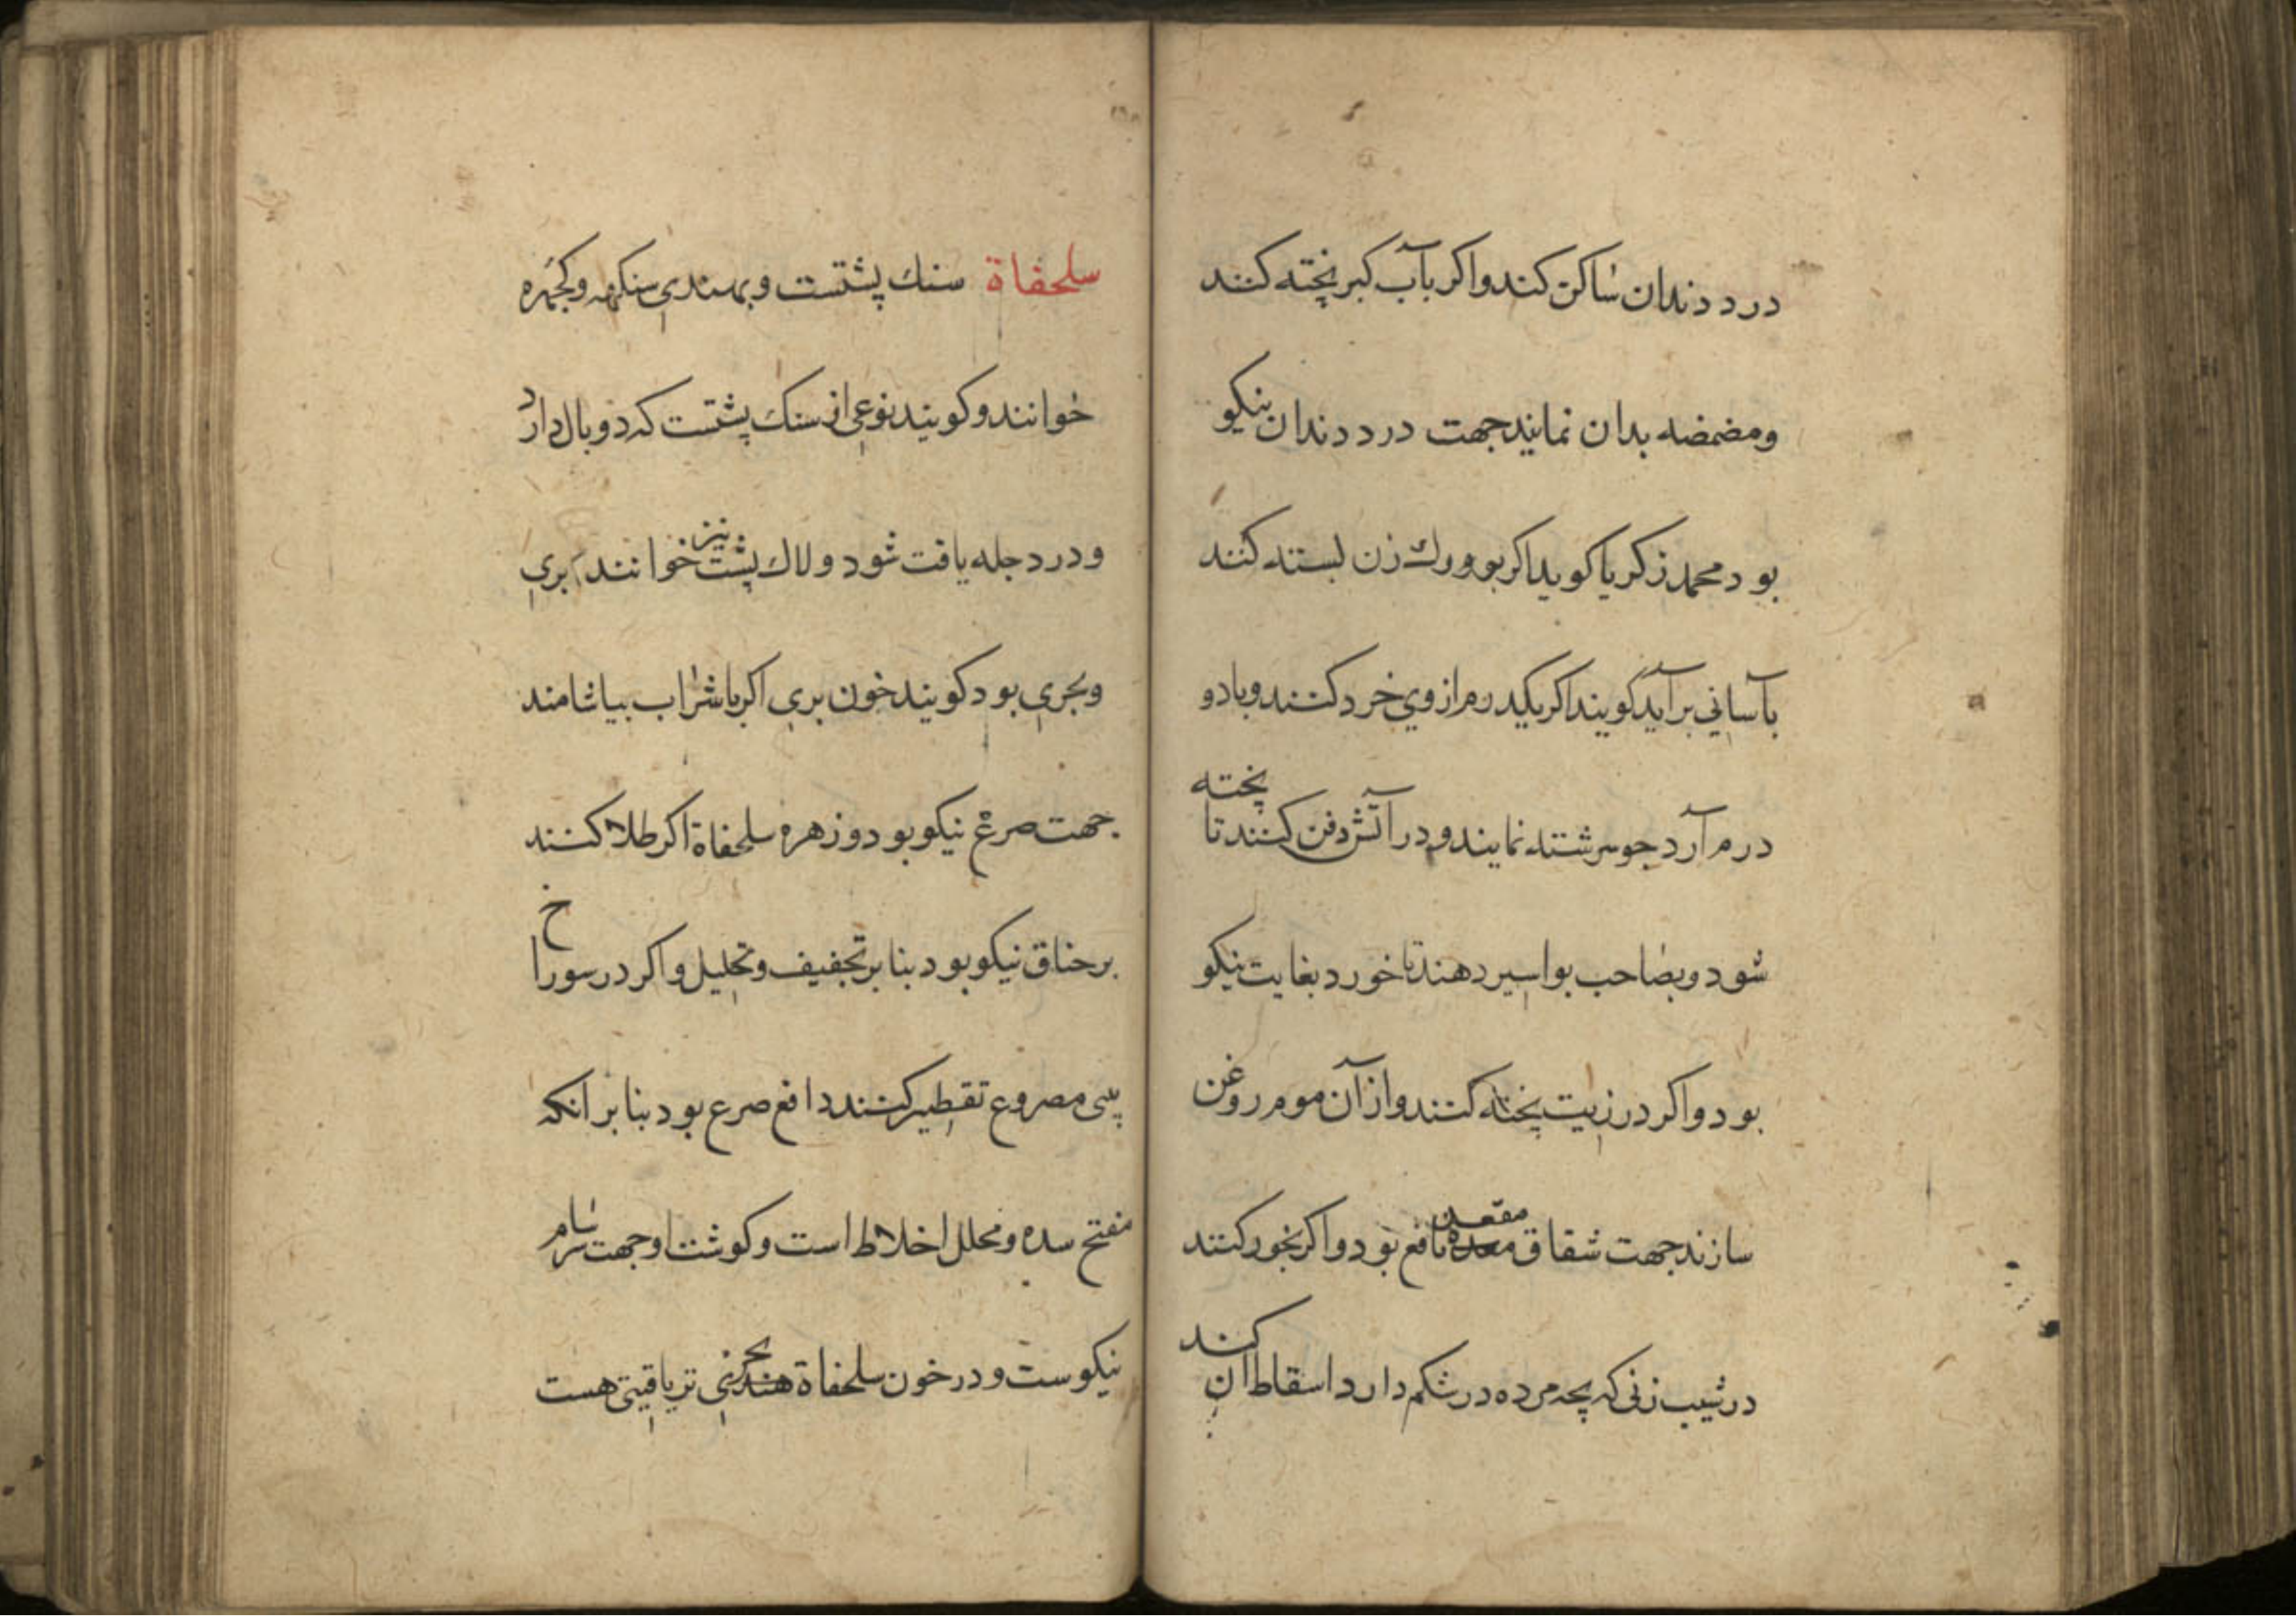 درد دندان ساكن كند واكر بآب كبر پخته كنند
ومضمضه بدان نمايند جهت درد دندان نيكو
بود محمد زكريا كويد اكر بو ورك زن بسته كنند
بآساني برآيد كويند اكر يكدرم از وي خرد كنند وبا دو
درم آرد جو سرشته نمايند ودر آتش دفن كنند تا پخته
شود وبصاحب بواسير دهند تا خورد بغايت نيكو
بود واكر در زيت پخته كنند واز آن موم روغن
سازند جهت شقاق مقعده نافع بود واكر بخور كنند
در شيب زني كه بچه مرده در شكم دارد اسقاط آن كند
سلحفاة سنك پشتست وبهندي سنكهه وكجهره
خوانند وكويند نوعي از سنك پشتست كه دو بال دارد
ودر دجله يافت شود ولاك پشت نيز خوانند بري
وبحري بود كويند خون بري اكر با شراب بياشامند
جهت صرع نيكو بود وزهره سلحفاة اكر طلا كنند
بر خناق نيكو بود بنا بر تجفيف وتحليل واكر در سوراخ
بيني مصروع تقطير كنند دافع صرع بود بنا بر آنكه
مفتح سده ومحلل اخلاط است وكوشت او جهت سرسام
نيكوست ودر خون سلحفاة بحري ترياقيتي هست